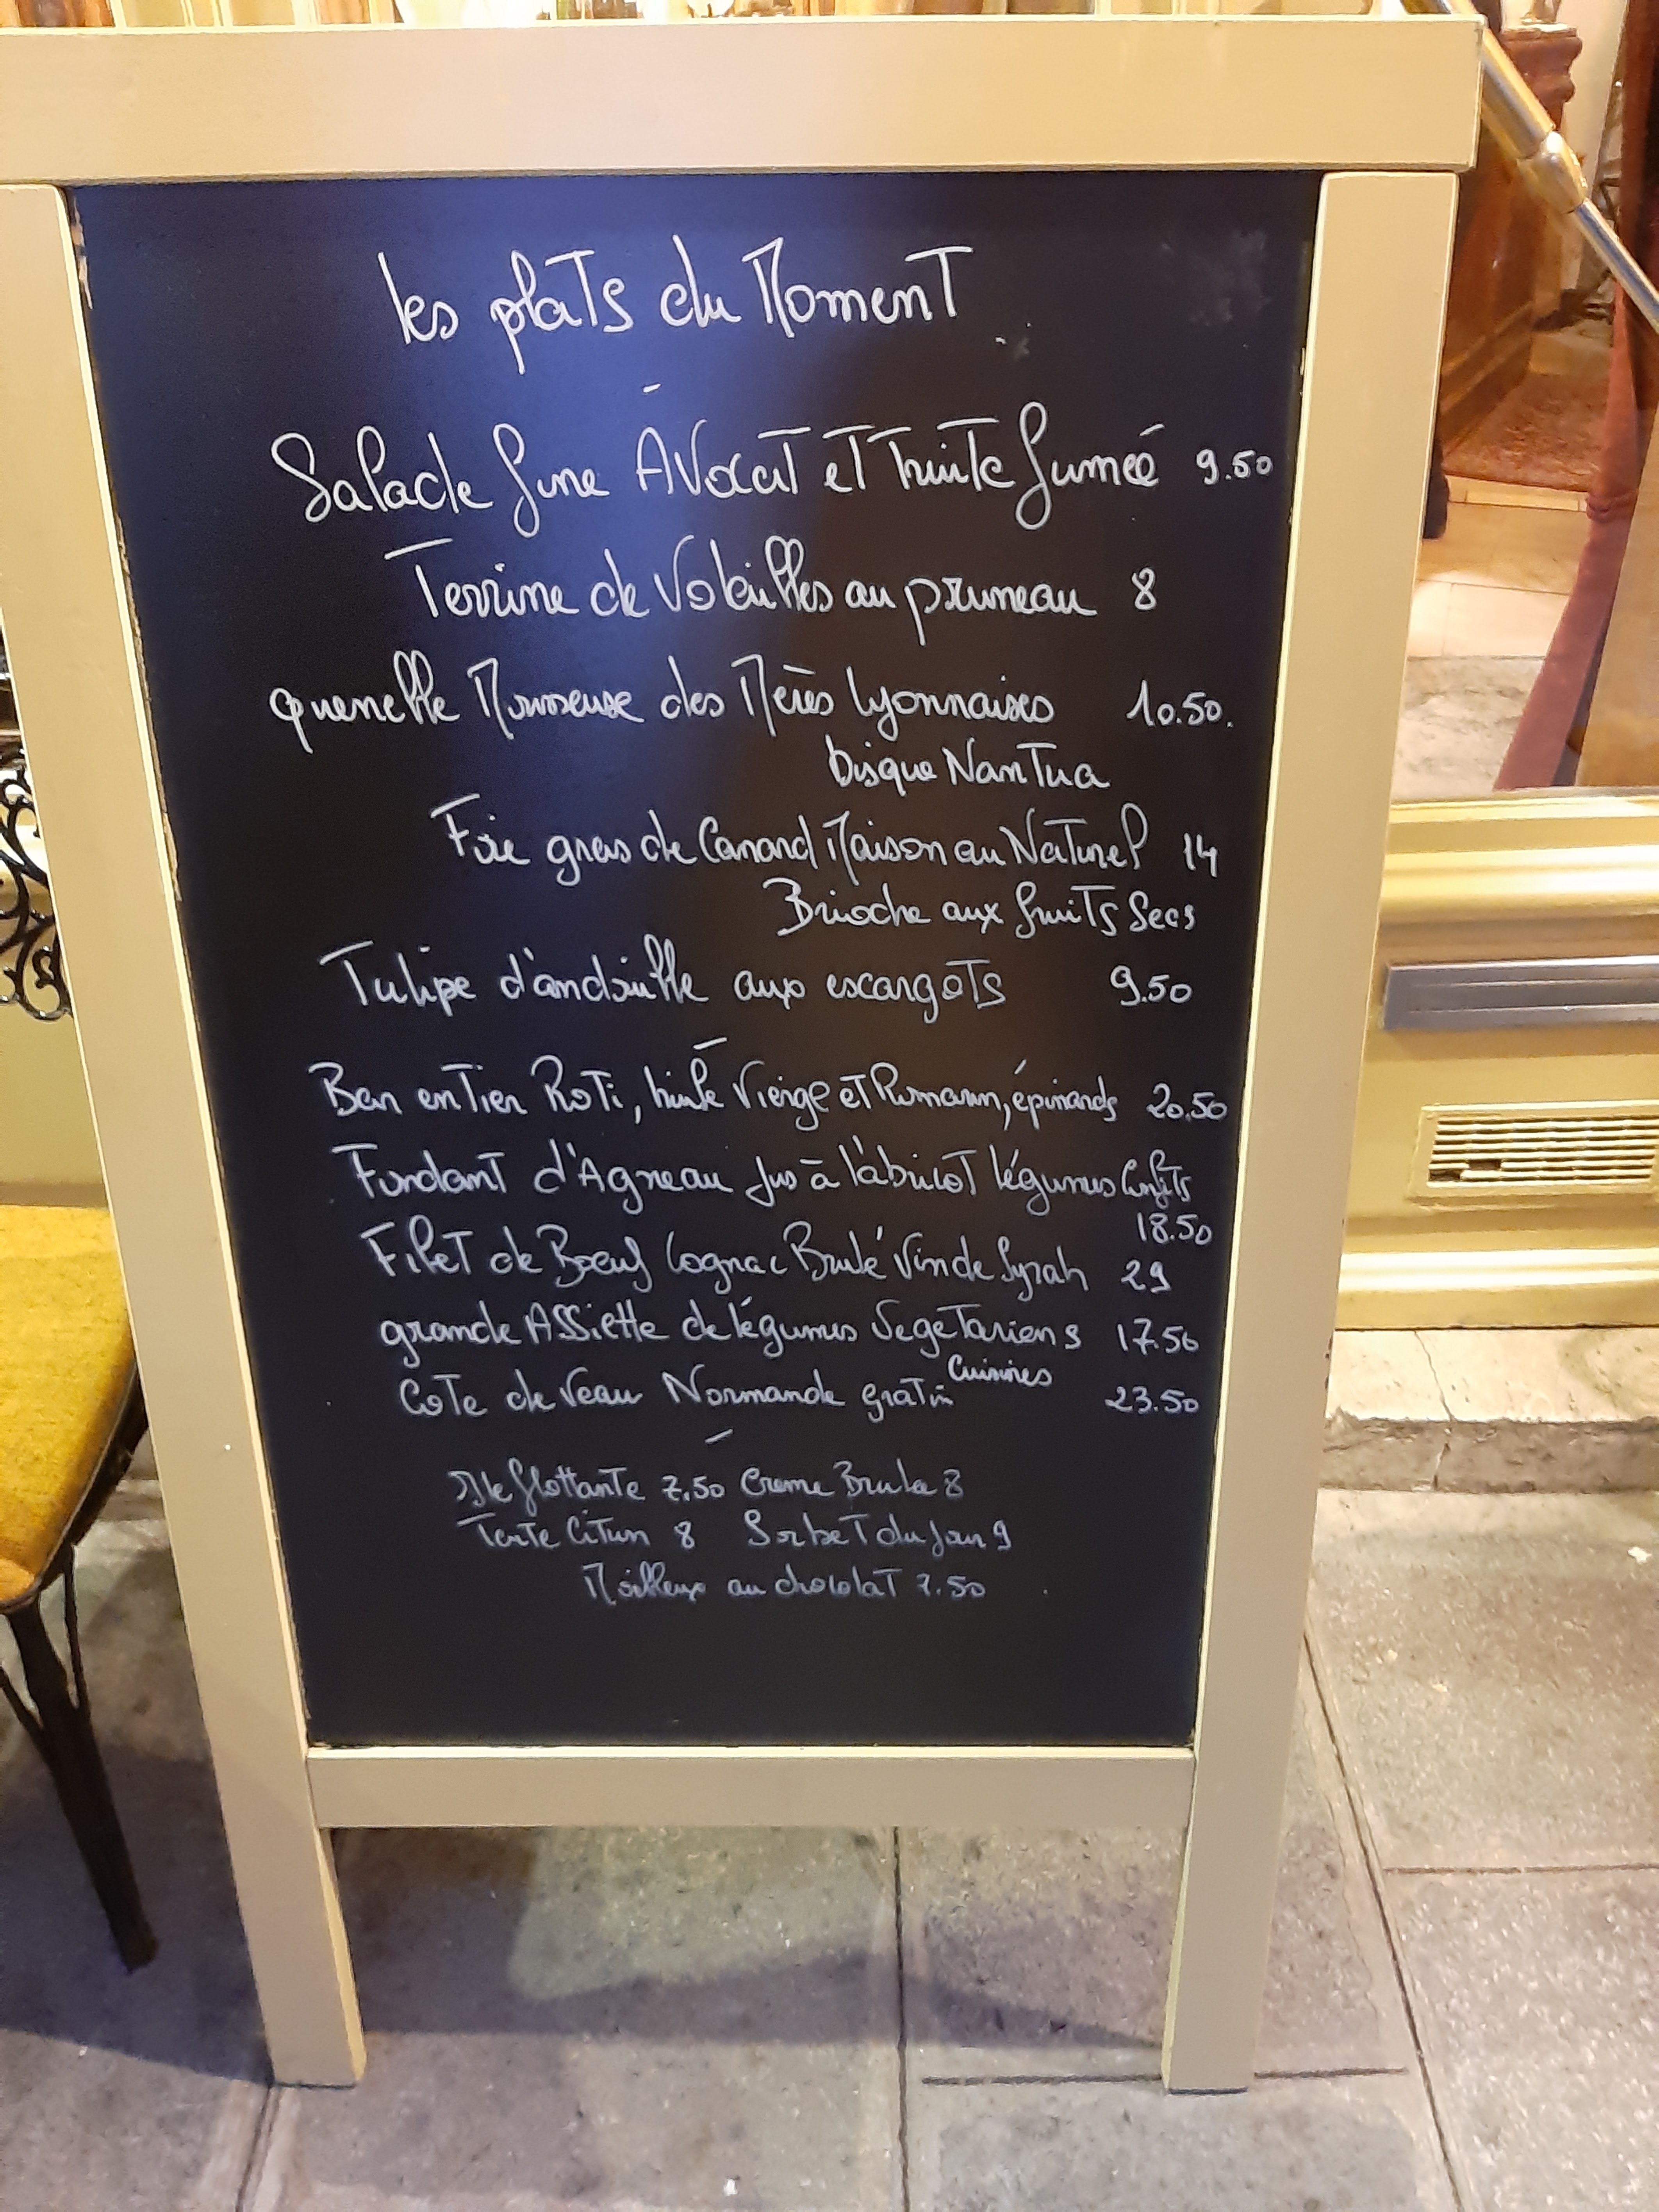 les plats du Moment
Salade fine Avocat et Truite fumée 9.50
Terrine de Volailles au pruneau 8
quenelle Mousseuse des Mères lyonnaises 10.50.
bisque Nantua
Foie gras de Canard Maison au Naturel 14
Brioche aux fruits Secs
Tulipe d'andouille aux escargots 9.50
Bar entier Roti, huile Vierge et Romarin, épinards 20.50
Fondant d'Agneau jus à l'abricot légumes Confits
18.50
Filet de Bœuf Cognac Brulé Vin de Syrah 29
grande Assiette de légumes Vegetariens 17.50
Cuisinés
Cote de Veau Normande gratin 23.50
Ile flottante 7.50 Creme Brulee 8
Tarte Citron 8 Sorbet du Jour 9
Moilleux au chocolat 7.50